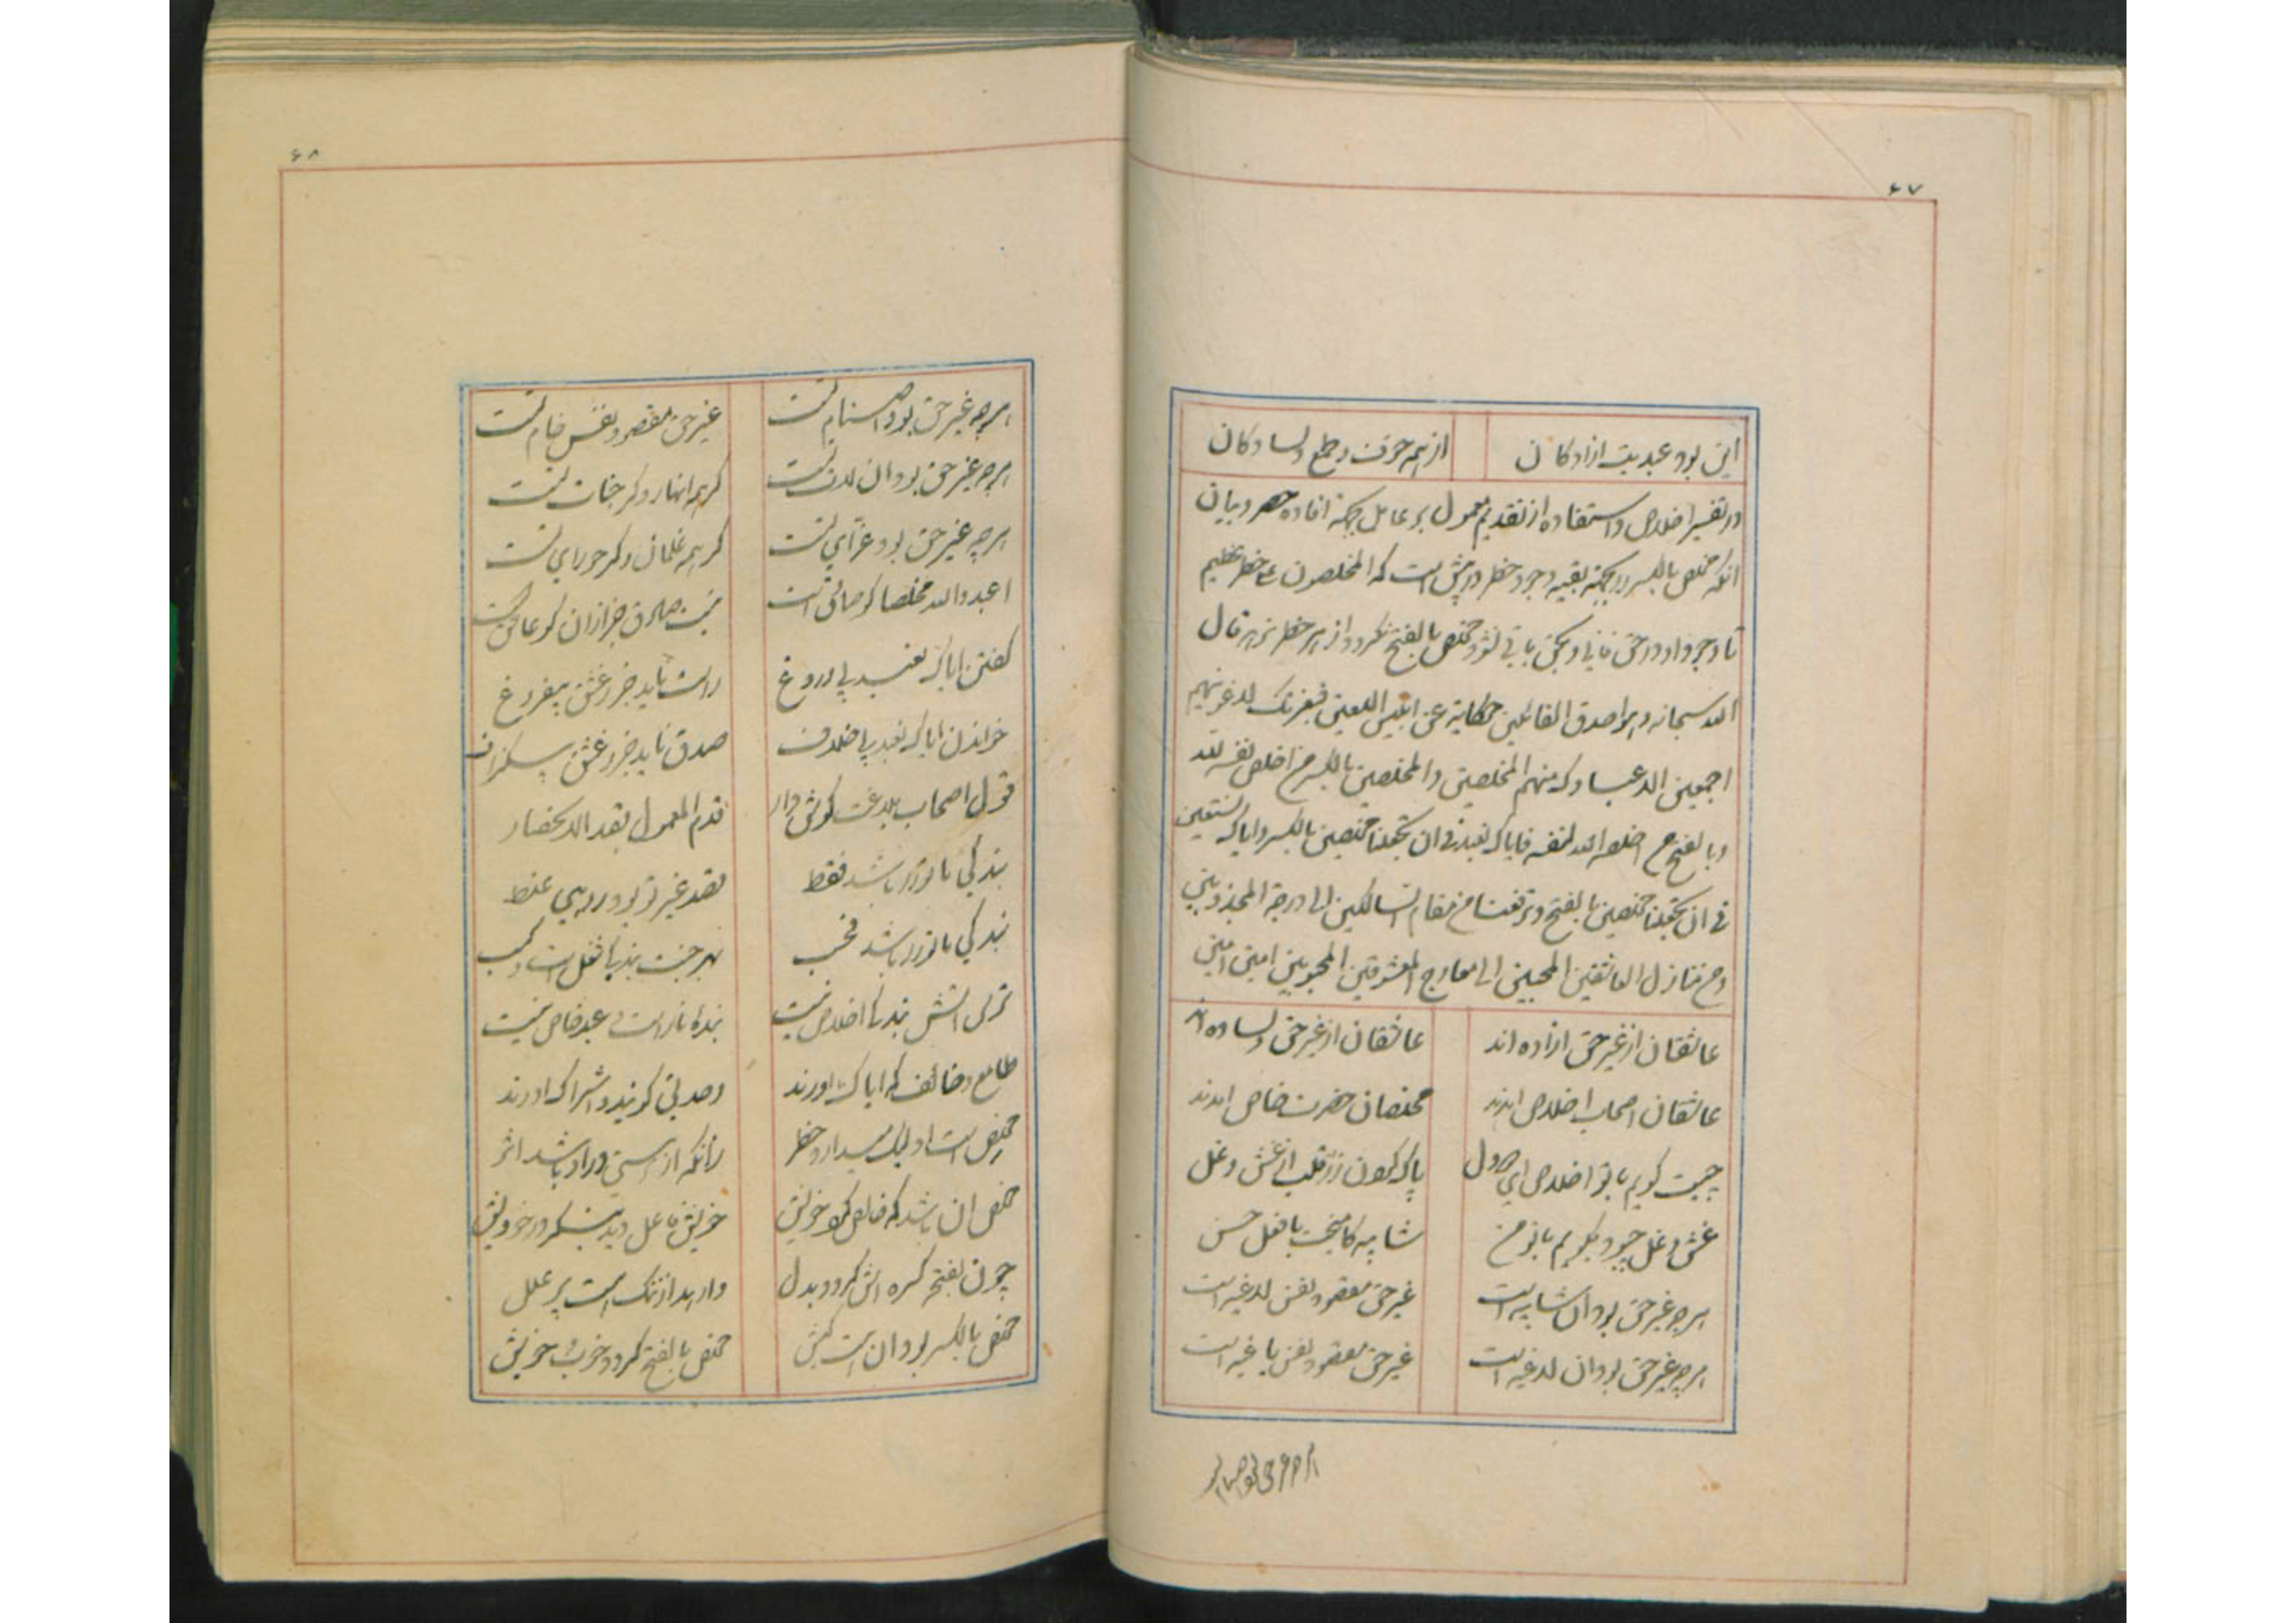 ۶۷
این بود عبدیت ازادکان
از همه حرف و طمع دلسادکان
در تفسیر اخلاص و استفاده از تقدیم معمول بر عامل بجهة افاده حصر و بیان
انکه مخلص بالکسر را بجهة بقیه وجود خطر در پیش است که المخلصون علی خطر عظیم
تا وجود او در حق فانی و بحق باقی نشود مخلص بالفتح نکردد و از هر خطر نرهد قال
الله سبحانه و هو اصدق القائلین حکایة عن ابلیس اللعین فبعزتک لاغوینهم
اجمعین الا عبادک منهم المخلصین و المخلصین بالکسر من اخلص نفسه لله
و بالفتح من اخلصه الله لنفسه فایاک نعبد فی ان تجعلنا مخلصین بالکسر و ایاک نستعین
فی ان تجعلنا مخلصین بالفتح و ترفعنا من مقام السالکین الی درجة المجذوبین
و من منازل العاشقین المحبین الی معارج المعشوقین المحبوبین امین امین
عاشقان از غیر حق ازاده اند
عاشقان از غیر حق دلساده اند
عاشقان اصحاب اخلاص امدند
مخلصان حضرت خاص امدند
چیست کویم با تو اخلاص ای دول
پاک کردن زر قلب از غش و غل
غش و غل چبود بکویم با تو من
شایبه کامیخت با فعل حسن
هرچه غیر حق بود ان شایبه است
غیر حق مقصود نفس لاغیه است
هرچه غیر حق بود ان لاغیه است
غیر حق مقصود نفس یاغیه است
هرچه غیر حق بود اصنام
۶۸
هرچه غیر حق بود اصنام تست
غیر حق مقصود نفس خام تست
هرچه غیر حق بود ان لات تست
کر همه انهار و کر جنات تست
هرچه غیر حق بود عزای تست
کر همه غلمان و کر حورای تست
اعبدوا الله مخلصا کو صادق است
نیست صادق جز ازان کو عاشق است
کفتن ایاک نعبد بی دروغ
راست ناید جز ز عشق پرفروغ
خواندن ایاک نعبد بی خلاف
صدق ناید جز ز عشق
قول اصحاب بلاغت کوش دار
قدم المعمول بقد الانحصار
بندکی با تو را باشد فقط
قصد غیر تو بود در وی غلط
بندکی با تو را باشد فحسب
بهر جنت بندیها فعل است و کسب
ترس اتش بند با اخلاص نیست
بندهٔ نار است عبد خاص نیست
طامع و خائف که ایاک اورند
وحدتی کویند و اشراک اورند
مخلص است او لیک میدارد خطر
زانکه از هستی درو باشد اثر
مخلص ان باشد که خالص کرد خویش
خویش فاعل دید بنکر در خودیش
چون بفتحه کسره اش کردد بدل
وارهد از ننک هست پر علل
مخلص بالکسر بود ان است کیش
مخلص بالفتح کردد خوب خویش